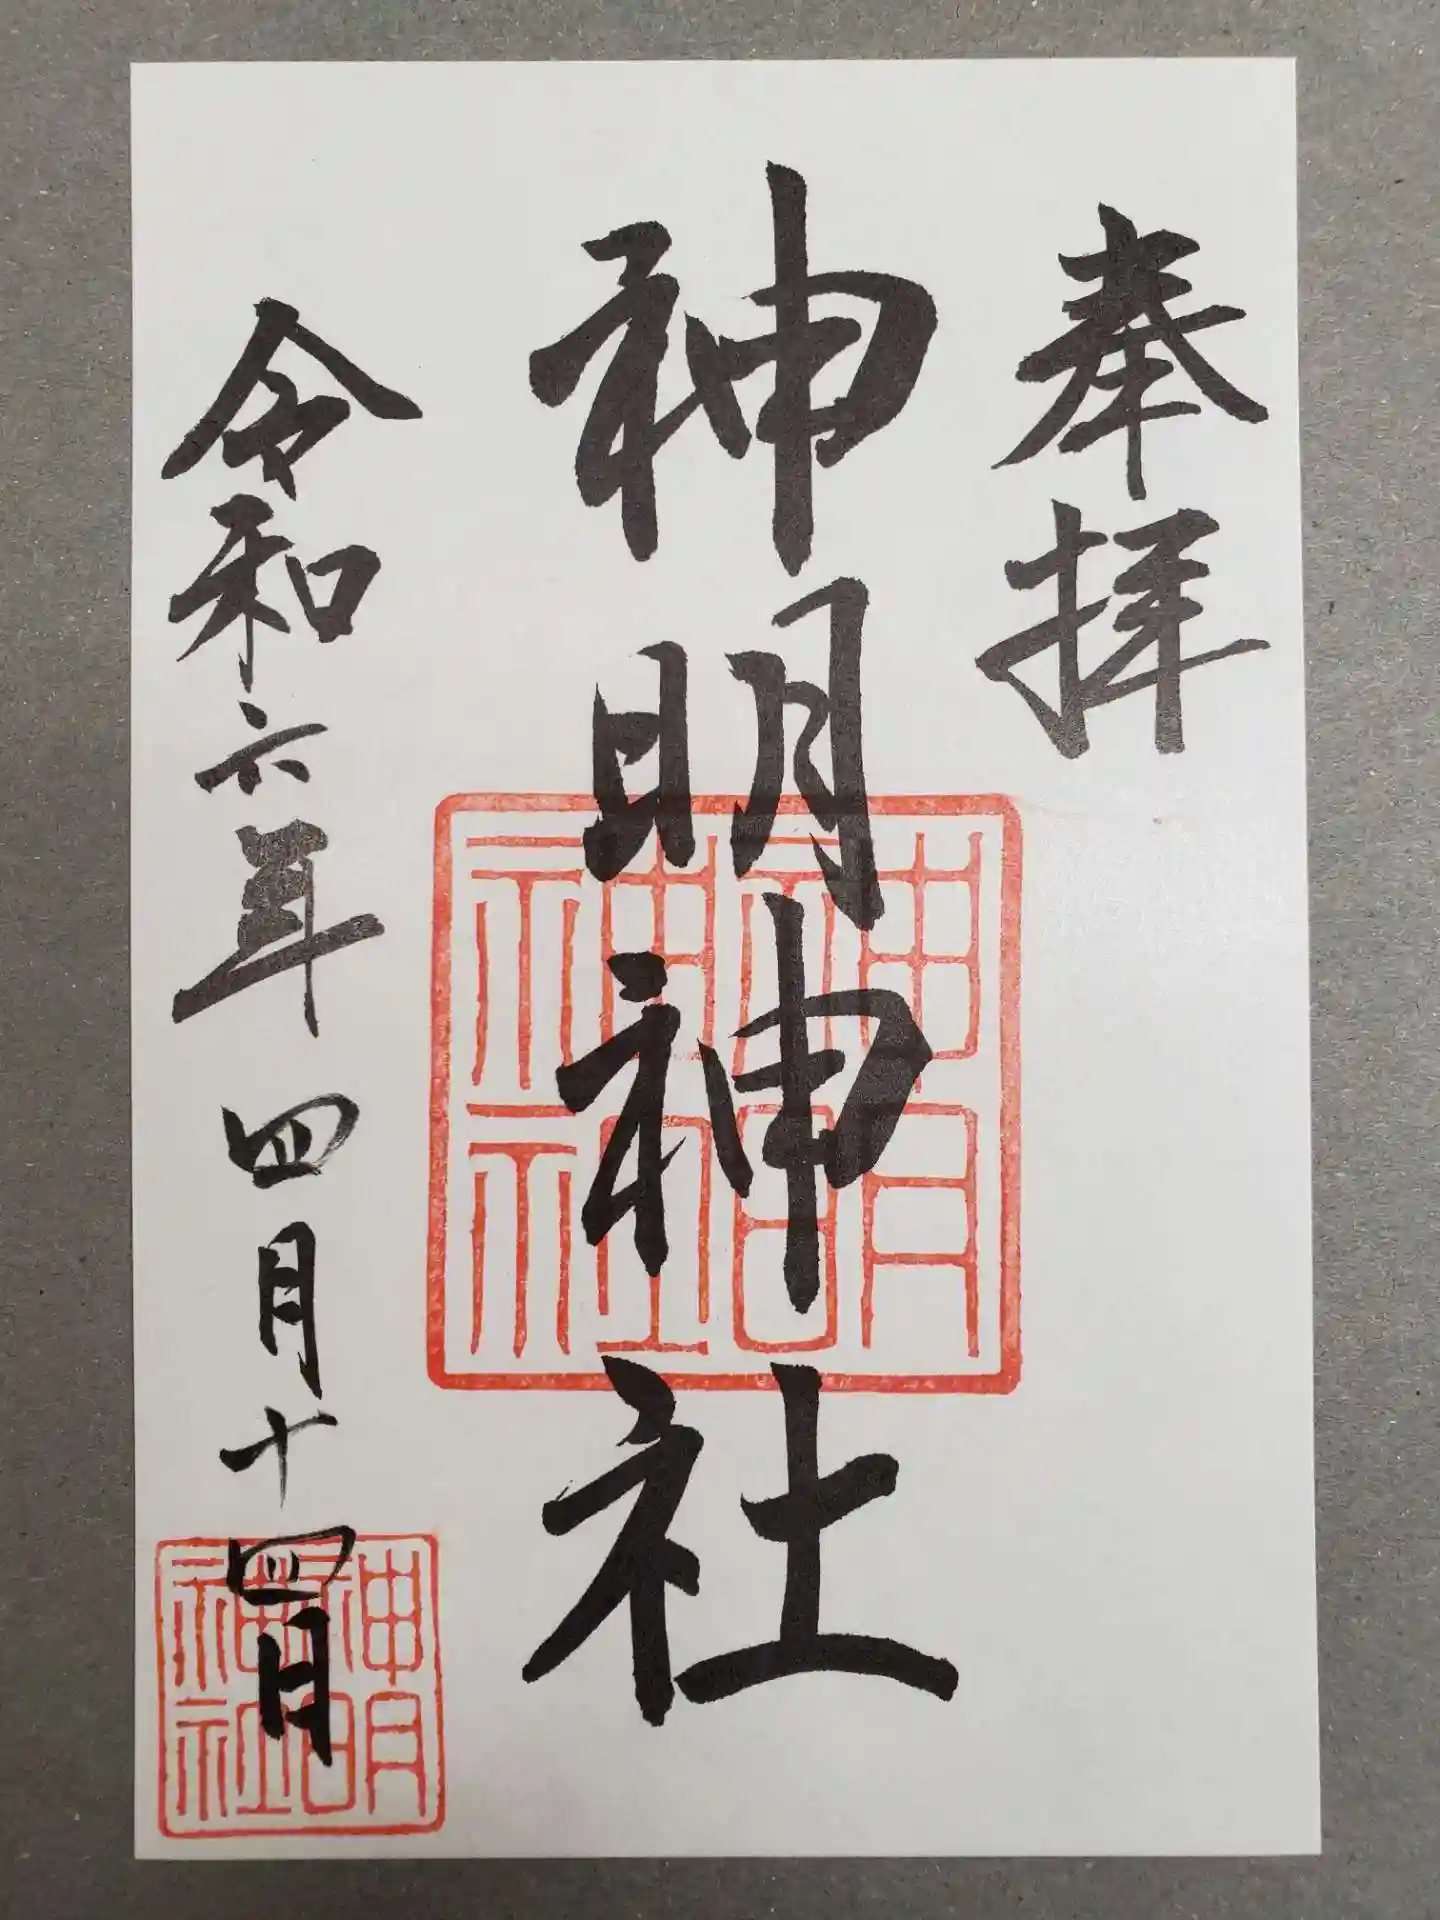 奉拝
神明神社
神明神社
令和六年四月十四日
神明神社